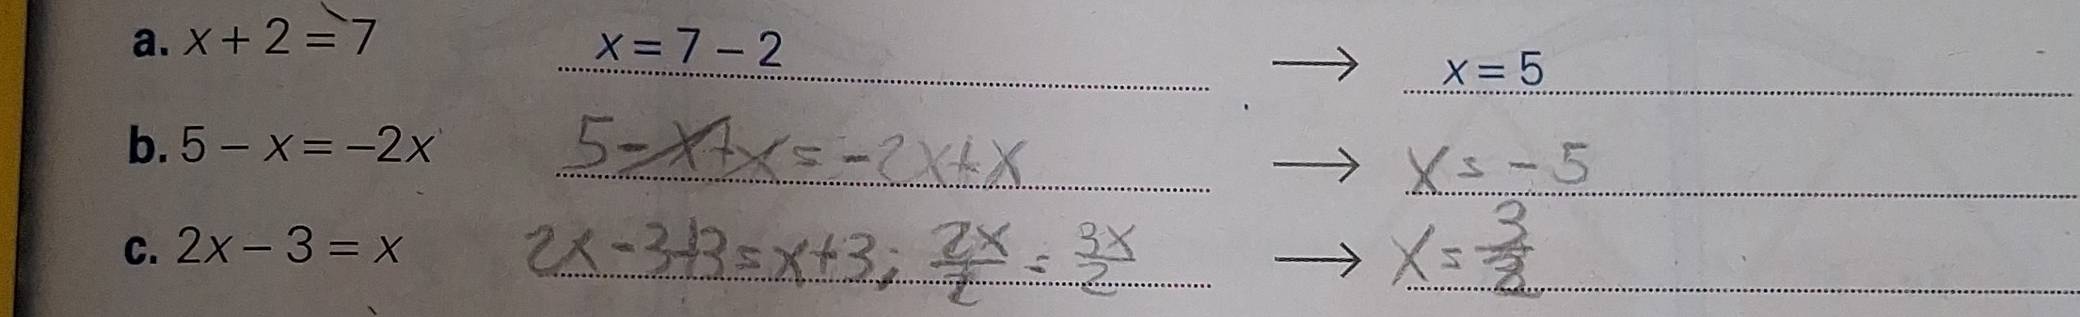 a. x + 2 = 7 x = 7 – 2 → x = 5
b. 5 – x = –2x 5-x+x=-2x+x → x=-5
c. 2x – 3 = x 2x-3+3=x+3; 2x/2 = 3x/2 → x=3/2